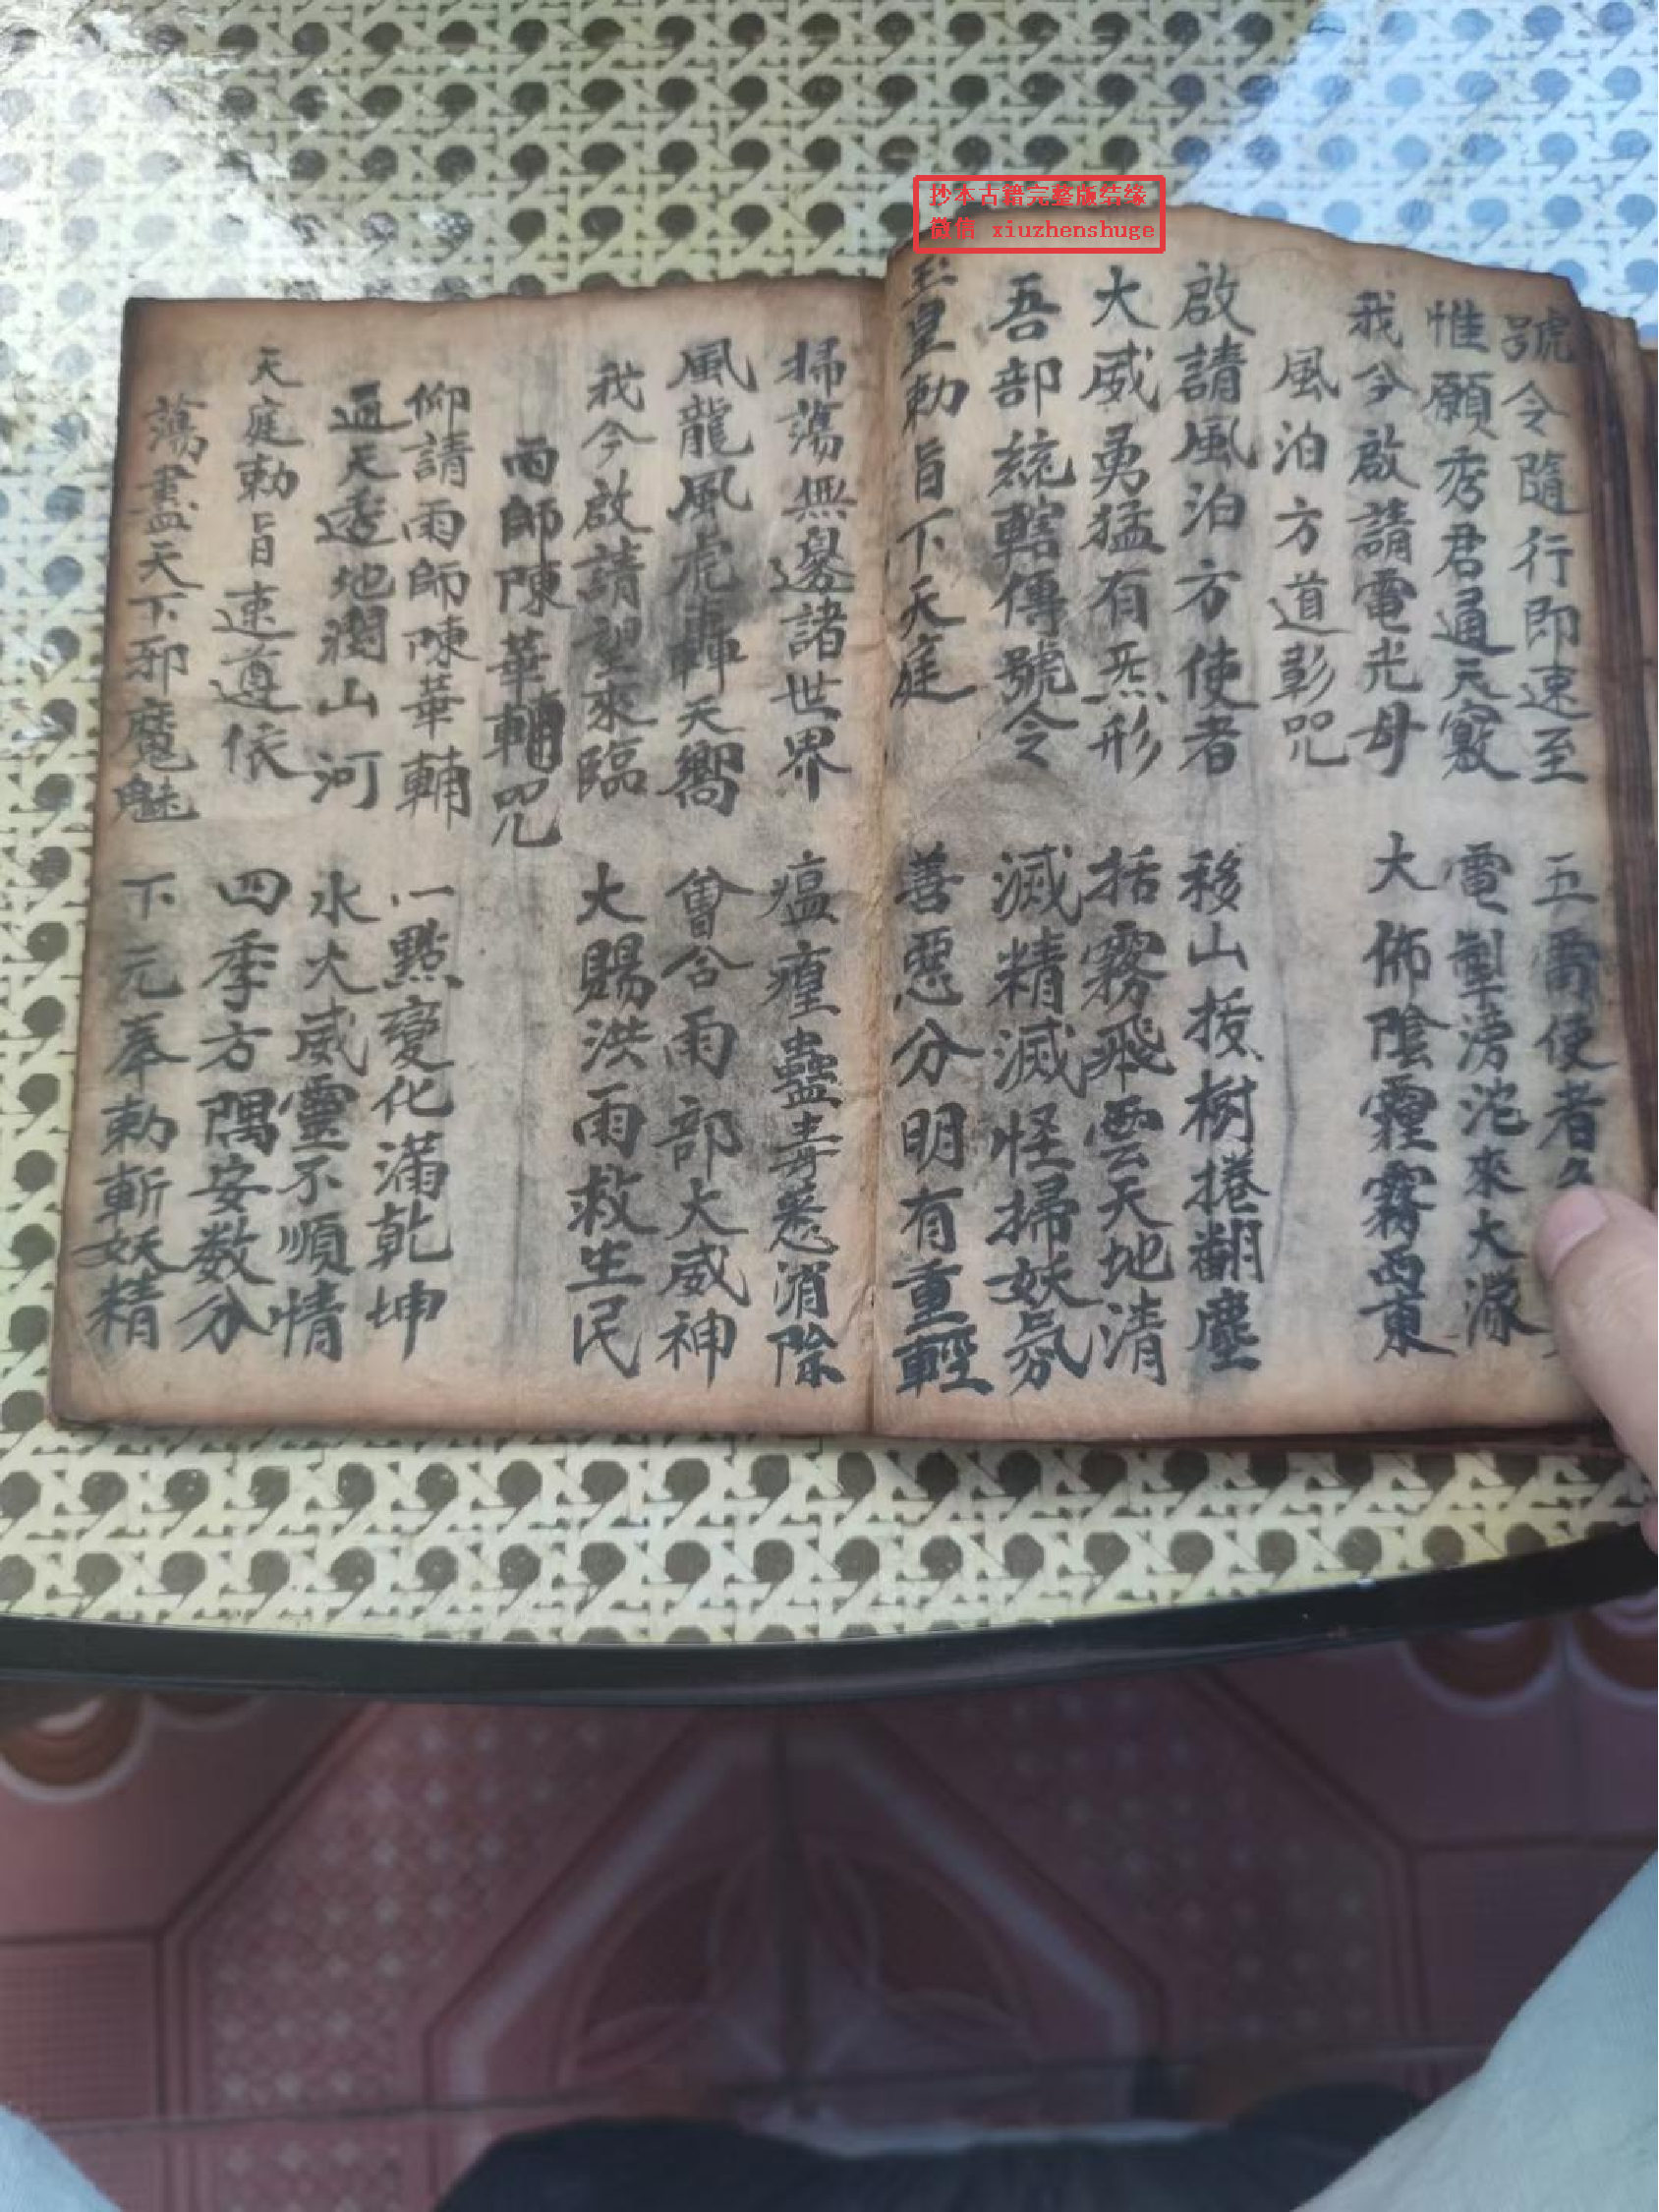 抄本古籍完整版结缘
微信 xiuzhenshuge
號令隨行即速至 五雷使者
惟願秀君通天竅 電掣滂沱來大濛
我今啟請電光母 大佈陰霾霧西東
風泊方道彰咒
啟請風泊方使者 移山拔樹捲翻塵
大威勇猛有炁形 括霧飛雲天地清
吾部統轄傳號令 滅精滅怪掃妖氛
玉皇勅旨下天庭 善惡分明有重輕
掃蕩無邊諸世界 瘟㾮蠱毒悉消除
風龍風虎轟天嚮 會合雨部大威神
我今啟請望來臨 大賜洪雨救生民
雨師陳華輔咒
仰請雨師陳華輔 一點變化滿乾坤
通天透地潤山河 水大威靈不順情
天庭勅旨速遵依 四季方隅安数分
蕩盡天下邪魔魅 下元奉勅斬妖精